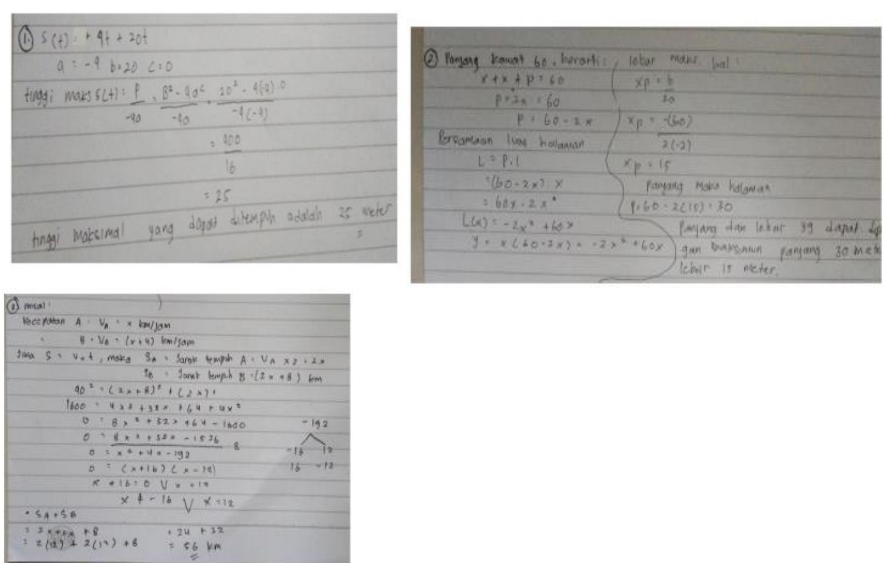 1. S(t) = + 4t + 20t
a = -4 b=20 c=0
tinggi maks S(t) =
= 400
16
= 25
tinggi maksimal yang dapat ditempuh adalah 25 meter
2 Panjang kawat 60, berarti:
x + x + p = 60
p + 2x = 60
p = 60 - 2x
Persamaan luas halaman
L = p.l
= (60 - 2x) x
= 60x - 2x²
L(x) = -2x² + 60x
y = x (60 - 2x) = -2x² + 60x
lebar maks hal:
xp = b
2a
xp = -(60)
2(-2)
xp = 15
Panjang maks halaman
p = 60 - 2(15) = 30
Panjang dan lebar yg dapat
maksimum panjang 30 mete
lebar 15 meter.
3 misal:
kecepatan A = VA = x km/jam
B = VB = (x+4) km/jam
S = v.t, maka SA = Jarak tempuh A = VA x 2 = 2x
SB = Jarak tempuh B = (2x+8) km
40² = (2x+8)² + (2x)²
1600 = 4x² + 32x + 64 + 4x²
0 = 8x² + 32x + 64 - 1600
0 = 8x² + 32x - 1536
8
0 = x² + 4x - 192
0 = (x+16) (x-12)
x + 16 = 0 V x = 12
x ≠ -16 V x = 12
-192
-16 12
16 -12
• SA + SB
= 2x + 2x + 8
= 2(12) + 2(12) + 8
= 24 + 32
= 56 km